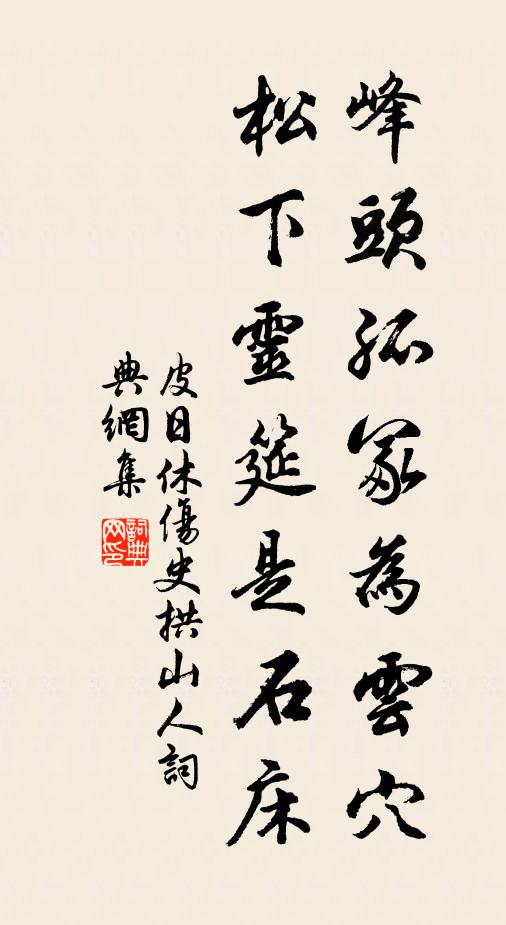 峰頭孤冢為雲穴
松下靈筵是石床
皮日休傷史拱山人詞
典網集
詞典網印